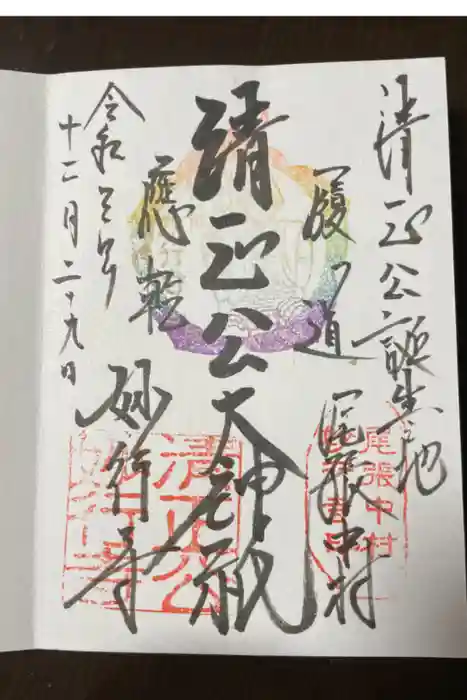 清正公誕生地
尾張中村
履道
清正公大神祇
應乾
妙行寺
令和三年
十二月二十九日
尾張中村
清正公
妙行寺